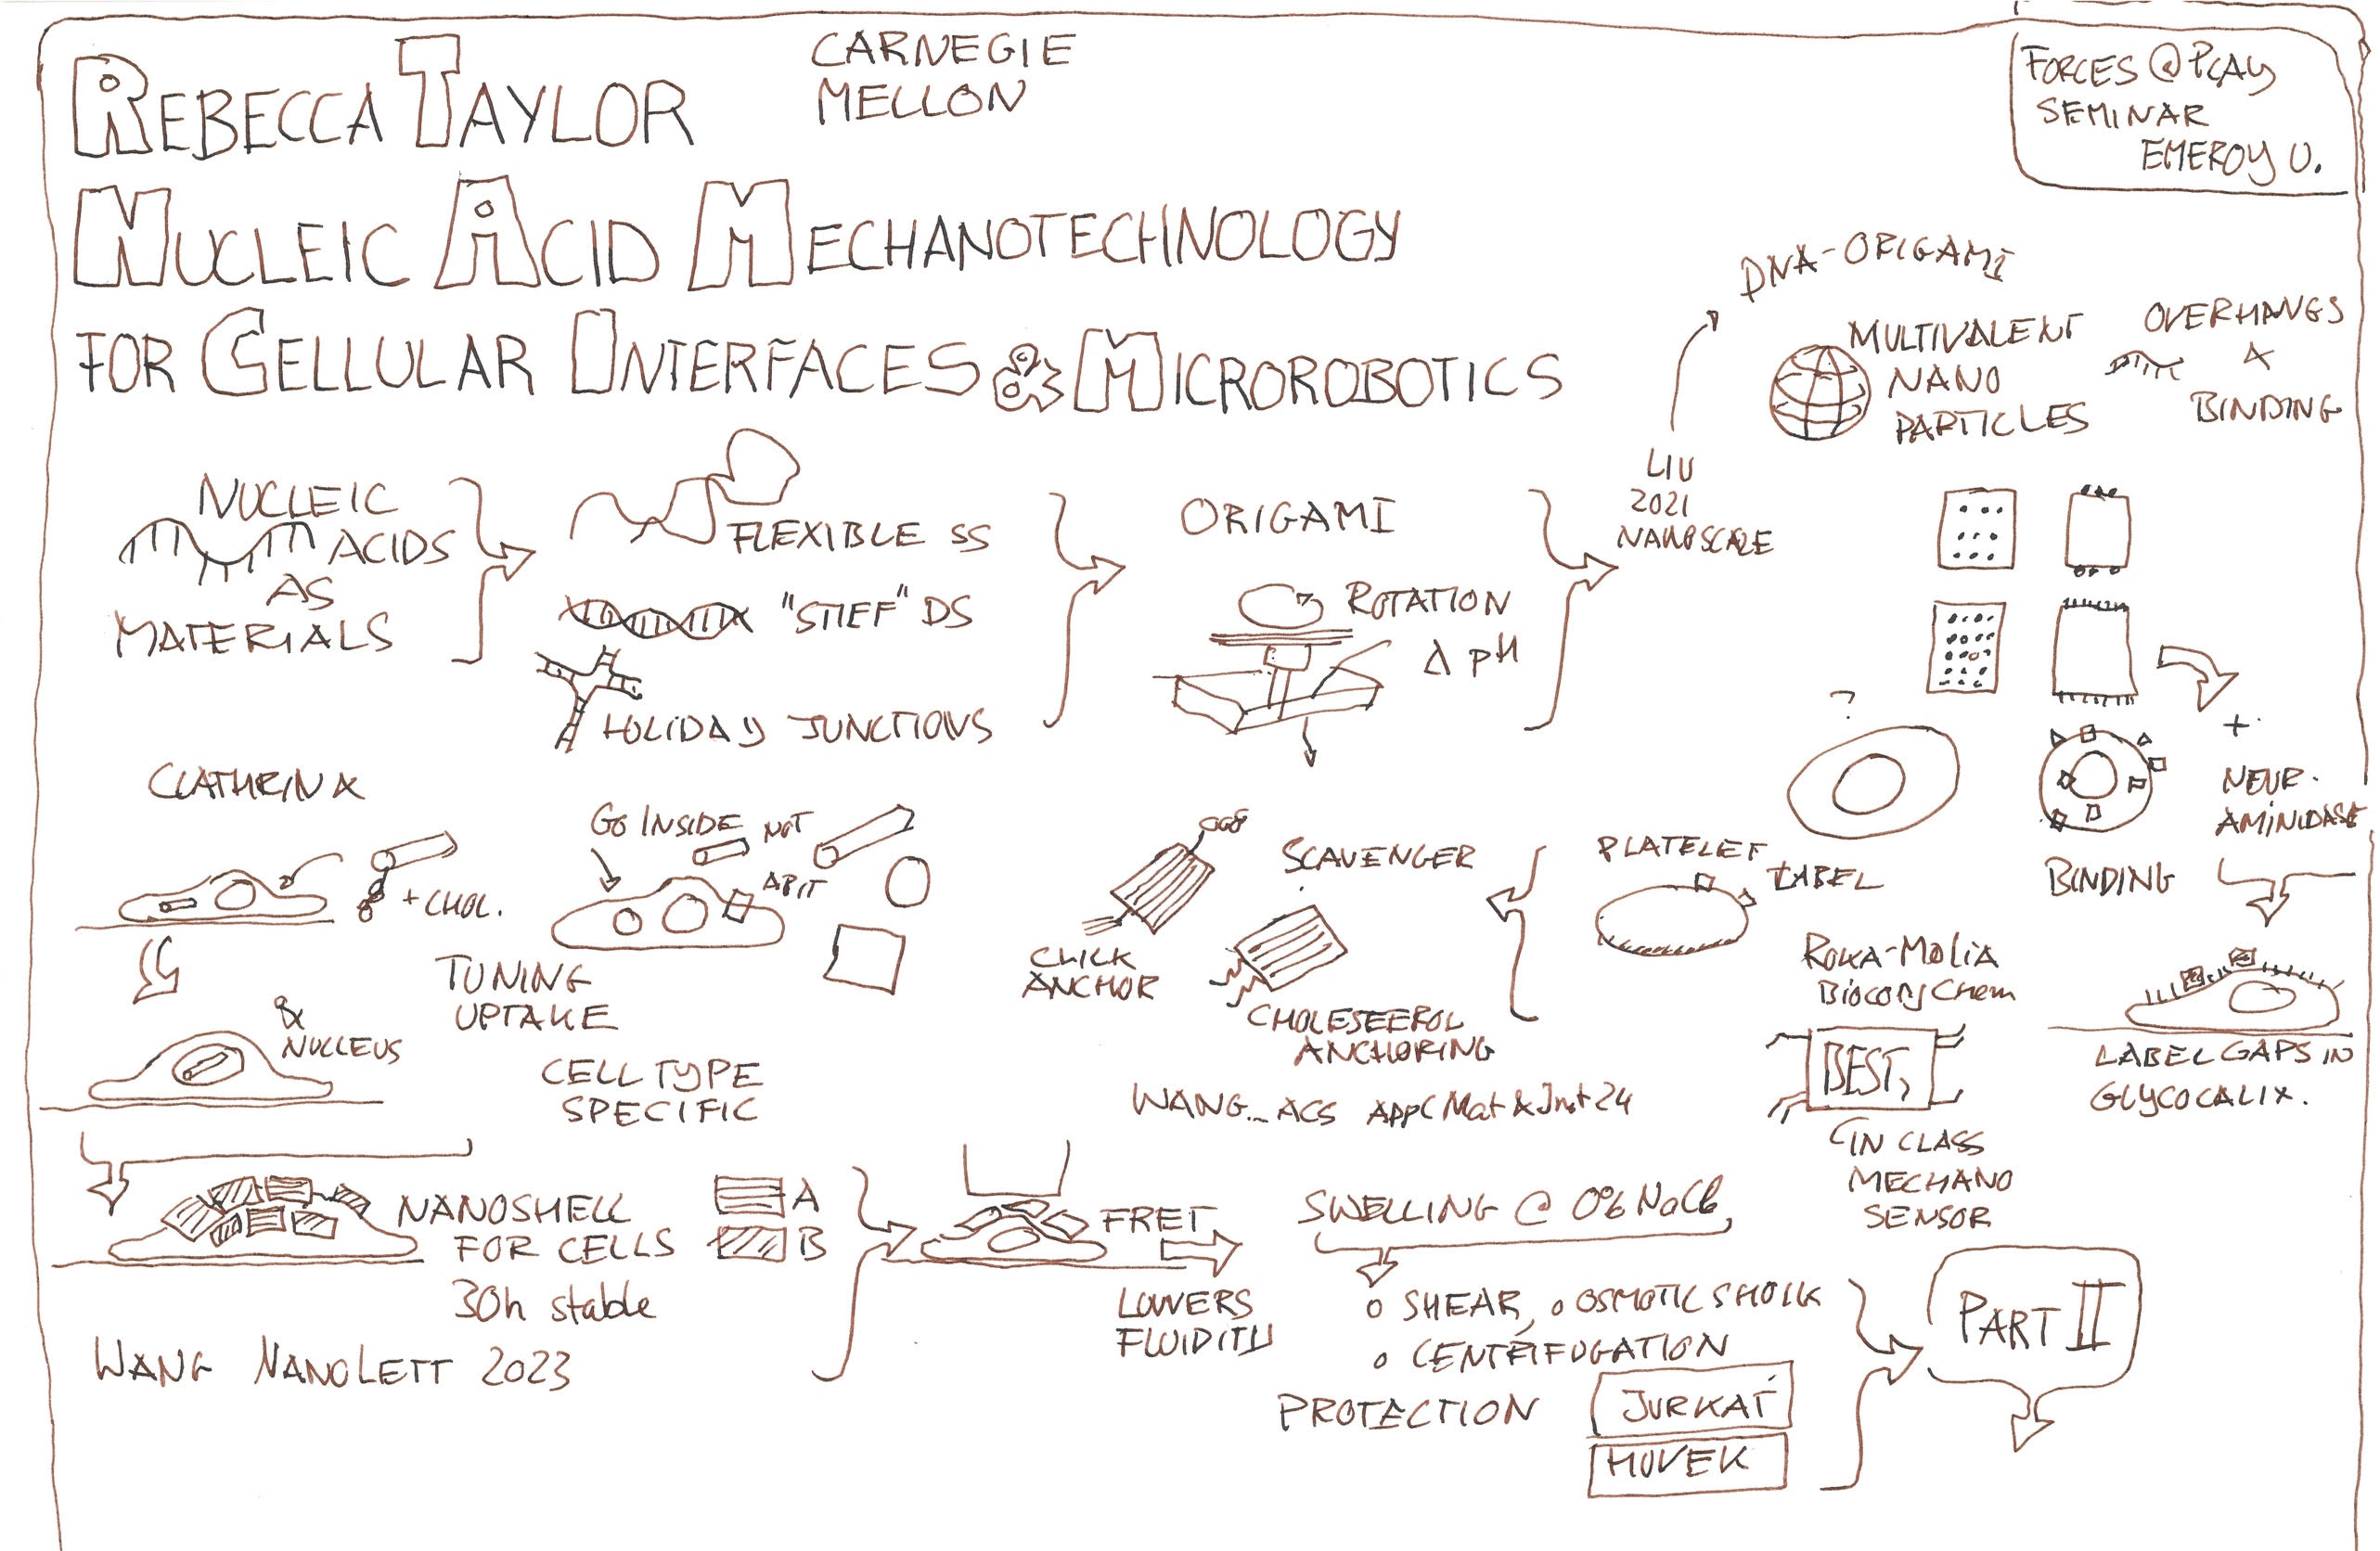 REBECCA TAYLOR
CARNEGIE
MELLON
FORCES @ PLAY
SEMINAR
EMEROY U.
NUCLEIC ACID MECHANOTECHNOLOGY
FOR CELLULAR INTERFACES & MICROROBOTICS
NUCLEIC
ACIDS
AS
MATERIALS
FLEXIBLE SS
"STIFF" DS
HOLIDAY JUNCTIONS
ORIGAMI
ROTATION
Δ pH
LIU
2021
NANOSCALE
DNA-ORIGAMI
MULTIVALENT
NANO
PARTICLES
OVERHANGS
4
BINDING
?
+
NEUR.
AMINIDASE
BINDING
LABEL GAPS IN
GLYCOCALIX.
PLATELET
LABEL
BIOCONJ CHEM
BEST,
IN CLASS
MECHANO
SENSOR
SCAVENGER
CLICK
ANCHOR
CHOLESEEROL
ANCHORING
WANG... ACS APPL Mat & Int 24
CLATHRIN
+ CHOL.
GO INSIDE
NOT
A BIT
TUNING
UPTAKE
CELL TYPE
SPECIFIC
&
NUCLEUS
NANOSHELL
FOR CELLS
30h stable
A
B
WANG NANOLETT 2023
FRET
LOWERS
FLUIDITY
SWELLING @ 0% NaCl,
SHEAR, OSMOTIC SHOCK
CENTRIFUGATION
PROTECTION
JURKAT
HUVEK
PART II